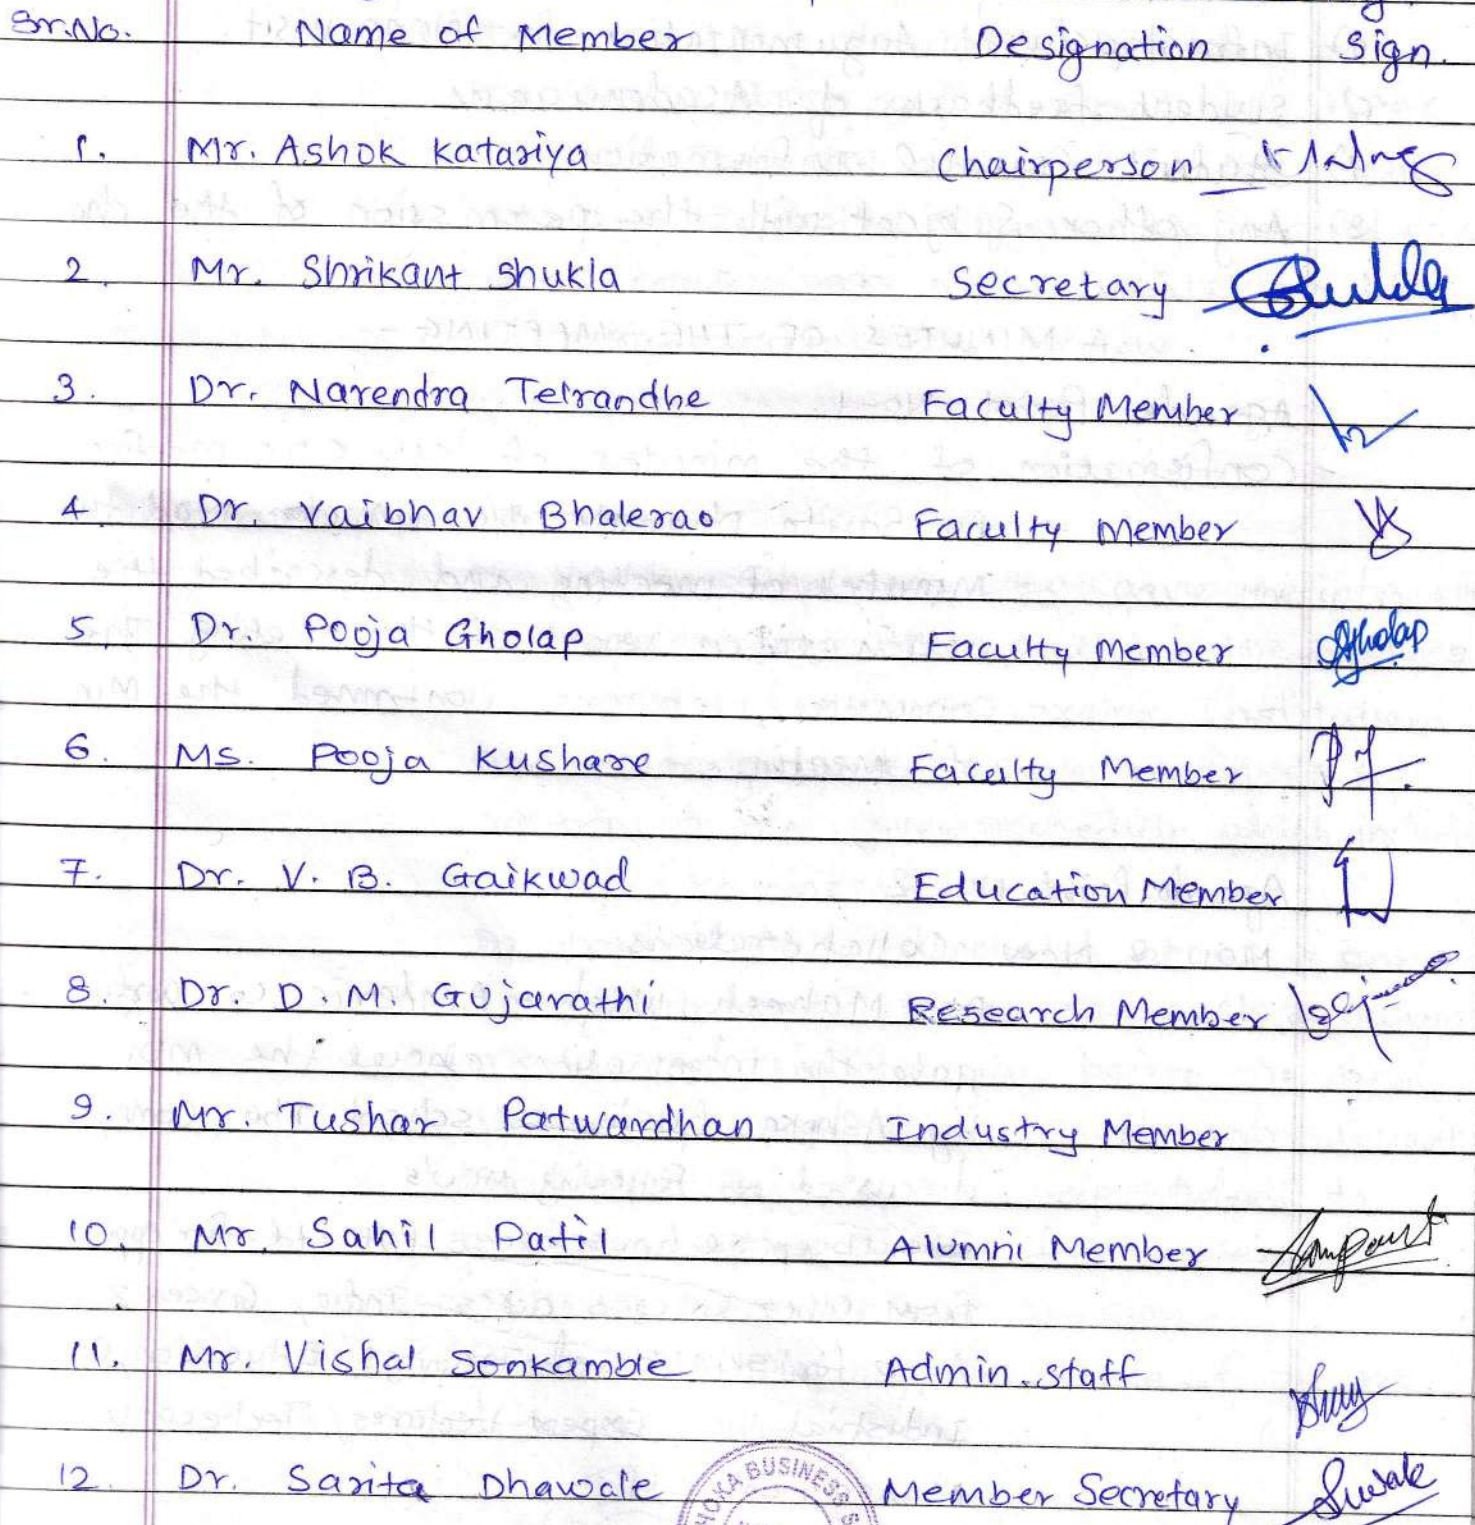 Sr.No. Name of Member Designation Sign.
1. Mr. Ashok Katariya Chairperson
2. Mr. Shrikant Shukla Secretary
3. Dr. Narendra Telrandhe Faculty Member
4. Dr. Vaibhav Bhalerao Faculty Member
5. Dr. Pooja Gholap Faculty Member Gholap
6. Ms. Pooja Kushare Faculty Member
7. Dr. V. B. Gaikwad Education Member
8. Dr. D. M. Gujarathi Research Member
9. Mr. Tushar Patwardhan Industry Member
10. Mr. Sahil Patil Alumni Member
11. Mr. Vishal Sonkamble Admin. staff
12. Dr. Sarita Dhawale Member Secretary
BUSINESS